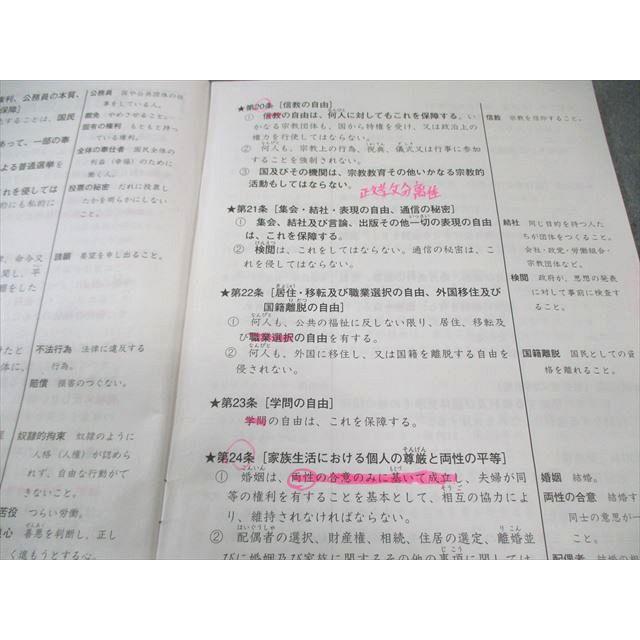 権利、公務員の本質、
保障]
することは、国民
あって、一部の奉
よる普通選挙を
これを侵しては
も私的に
公務員 国や公共団体の仕
事をしている人。
罷免 やめさせること。
固有の権利 もともと持っ
ている権利。
全体の奉仕者 国民全体の
利益(幸福)のために
働く人。
投票の秘密 だれに投票し
たかを明らかにしない
こと。
、命令又
関し、平
請願 希望を申し出ること。
不法行為 法律に違反する
行為。
賠償 損害のつぐない。
奴隷的拘束 奴隷のように
人格(人権)が認めら
れず、自由な行動がで
きないこと。
苦役 つらい労働。
心 善悪を判断し、正し
く道をもうとする心。
★第20条[信教の自由]
① 信教の自由は、何人に対してもこれを保障する。い
かなる宗教団体も、国から特権を受け、又は政治上の
権力を行使してはならない。
② 何人も、宗教上の行為、祝典、儀式又は行事に参加
することを強制されない。
③ 国及びその機関は、宗教教育その他いかなる宗教的
活動もしてはならない。
★第21条[集会・結社・表現の自由、通信の秘密]
① 集会、結社及び言論、出版その他一切の表現の自由
は、これを保障する。
② 検閲は、これをしてはならない。通信の秘密は、こ
れを侵してはならない。
★第22条[居住・移転及び職業選択の自由、外国移住及び
国籍離脱の自由]
① 何人も、公共の福祉に反しない限り、居住、移転及
び職業選択の自由を有する。
② 何人も、外国に移住し、又は国籍を離脱する自由を
侵されない。
★第23条[学問の自由]
学問の自由は、これを保障する。
★第24条[家族生活における個人の尊厳と両性の平等]
① 婚姻は、両性の合意のみに基いて成立し、夫婦が同
等の権利を有することを基本として、相互の協力によ
り、維持されなければならない。
② 配偶者の選択、財産権、相続、住居の選定、離婚並
びに婚姻及び家族に関するその他の事項に関しては
信教 宗教を信仰すること。
結社 同じ目的を持つ人た
ちが団体をつくること。
会社・政党・労働組合・
宗教団体など。
検閲 政府が、思想の発表
に対して事前に検査す
ること。
国籍離脱 国民としての資
格を離れること。
婚姻 結婚。
両性の合意 結婚する
同士の意思が一
こと。
配偶者 結婚の相